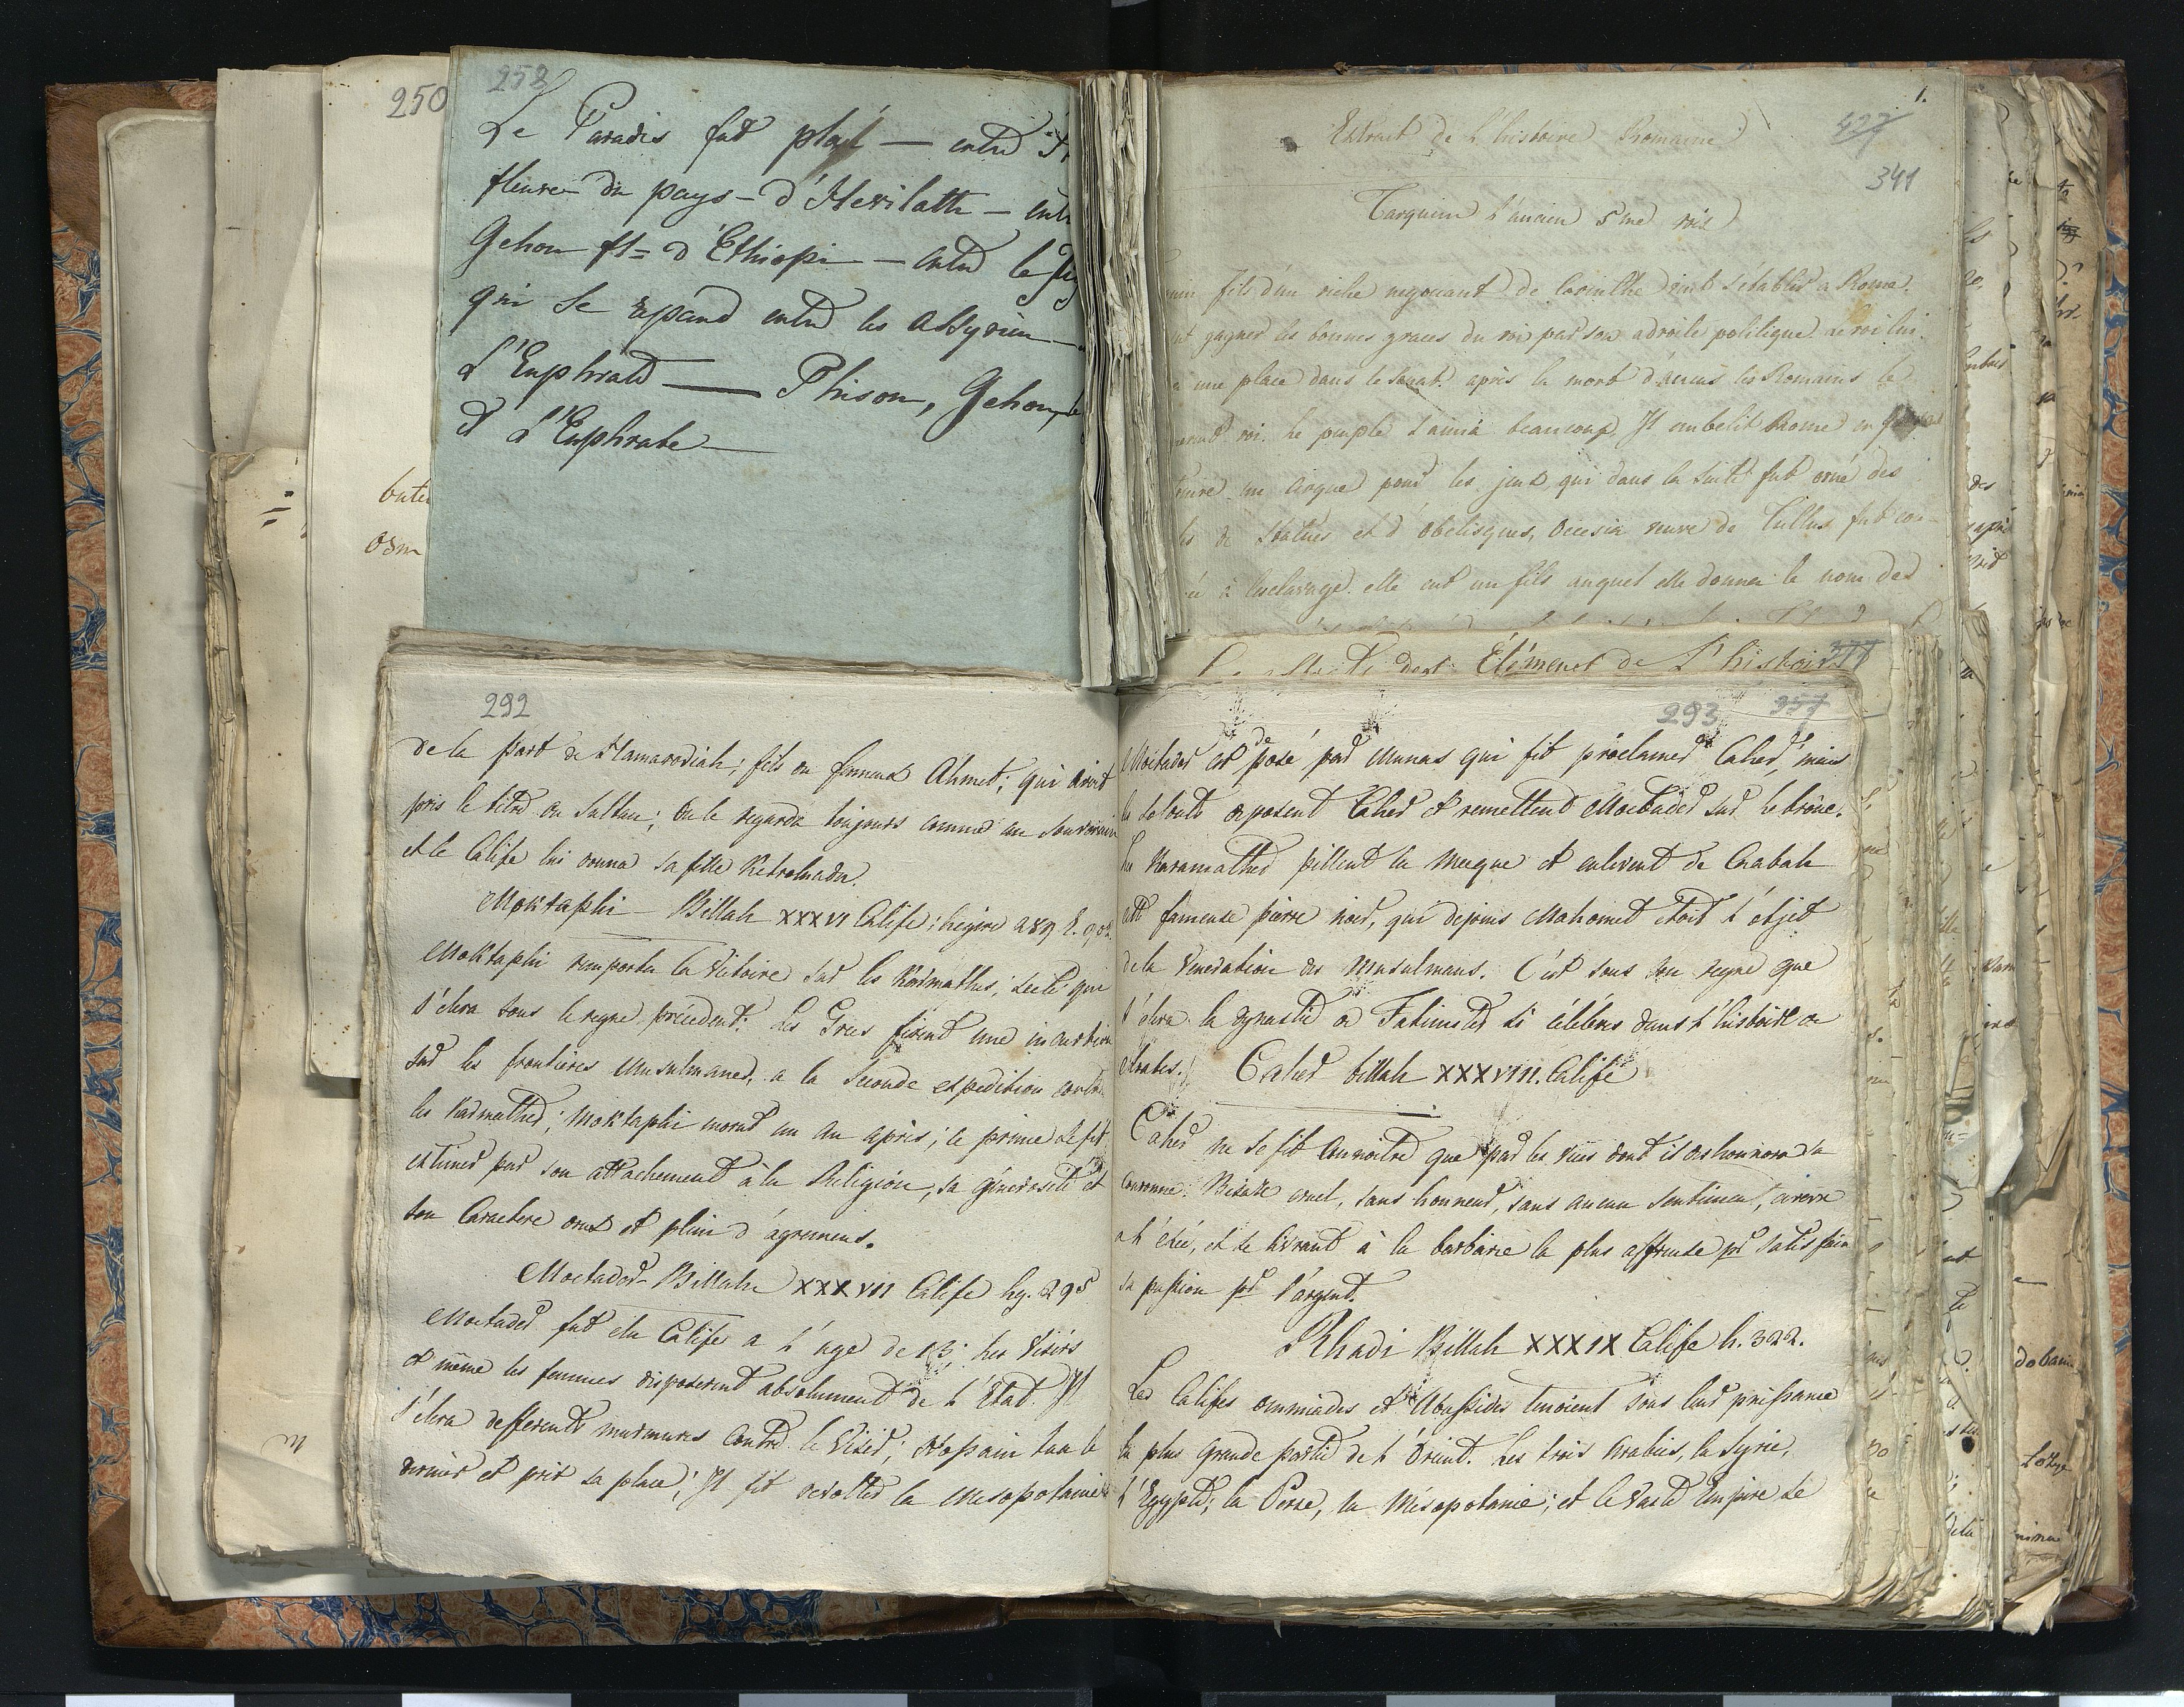 250
258
Le Paradis fut placé — entre
fleuve du pays - d'Hevilath - entre
Gehon fl= d'Ethiopi — entre le
qui se repand entre les Assyrien —
L'Euphrate — Phison, Gehon,
et L'Euphrate —
1.
Extrait de L'histoire Romaine
341
Tarquin l'ancien 5me roi
fils d'un riche negociant de Corinthe vint s'etablir a Rome.
gagner les bonnes graces du roi par son adroite politique. ce roi lui
une place dans le Senat. après la mort d'Ancus les Romains le
roi. Le peuple l'aima beaucoup, Il embelit Rome en
un cirque pour les jeux, qui dans la suite fut orné des
de Statues et d'obelisques, Ocresia veuve de Tullus fut
à l'esclavage. elle eut un fils auquel elle donna le nom de
Élémens de L'histoire
292
de la part de Hamarodiah; fils du fameux Ahmet; qui avoit
pris le titre de Sultan; On le regarda toujours comme un Souverain
et le Calife lui donna sa fille
Moktaphi - Billah XXXVI Calife; hegire 289 E. 902
Moktaphi remporta la Victoire sur les Karmathes; secte qui
s'éleva sous le regne précédent. Les Grecs firent une incursion
sur les frontieres Musulmanes, a la Seconde expedition contre
les Karmathes; Moktaphi mourut un an après; ce prince se fit
estimer par son attachement à la Religion, sa générosité et
son Caractere doux et plein d'agremens.
Moctader - Billah XXXVII Calife hg. 295
Moctader fut élu Calife a l'age de 13; les Visirs
et même les femmes disposerent absolument de l'État. Il
s'éleva differents murmures contre le Visir; tua le
dernier et prit sa place; Il fit revolter la Mesopotamie
293 357
Moctader est déposé par Munas qui fit proclamer Caher, mais
les Soldats deposent Caher et remettent Moctader sur le trône.
Les Karamathes pillent la Mecque et enlevent de Caabah
cette fameuse pierre noir, qui depuis Mahomet étoit l'objet
de la Veneration des Musulmans. C'est sous son regne que
s'éleva la dynastie de Fatimites si célèbres dans l'histoire de
Arabes. Caher billah XXXVIII. Calife
Caher ne se fit connoitre que par les vices dont il deshonnora la
couronne. Bizare cruel, sans honneur, sans aucun sentiment, avare
a l'exès, et se livrant à la barbarie la plus affreuse pr satisfaire
sa passion pr l'argent.
Rhadi Billah XXXIX Calife h. 322.
Les Califes ommiades et Abassides tenoient sous leur puissance
la plus grande partie de l'Orient. Les trois Arabies, la Syrie,
L'Egypte; la Perse, la Mésopotamie; et le vaste Empire de